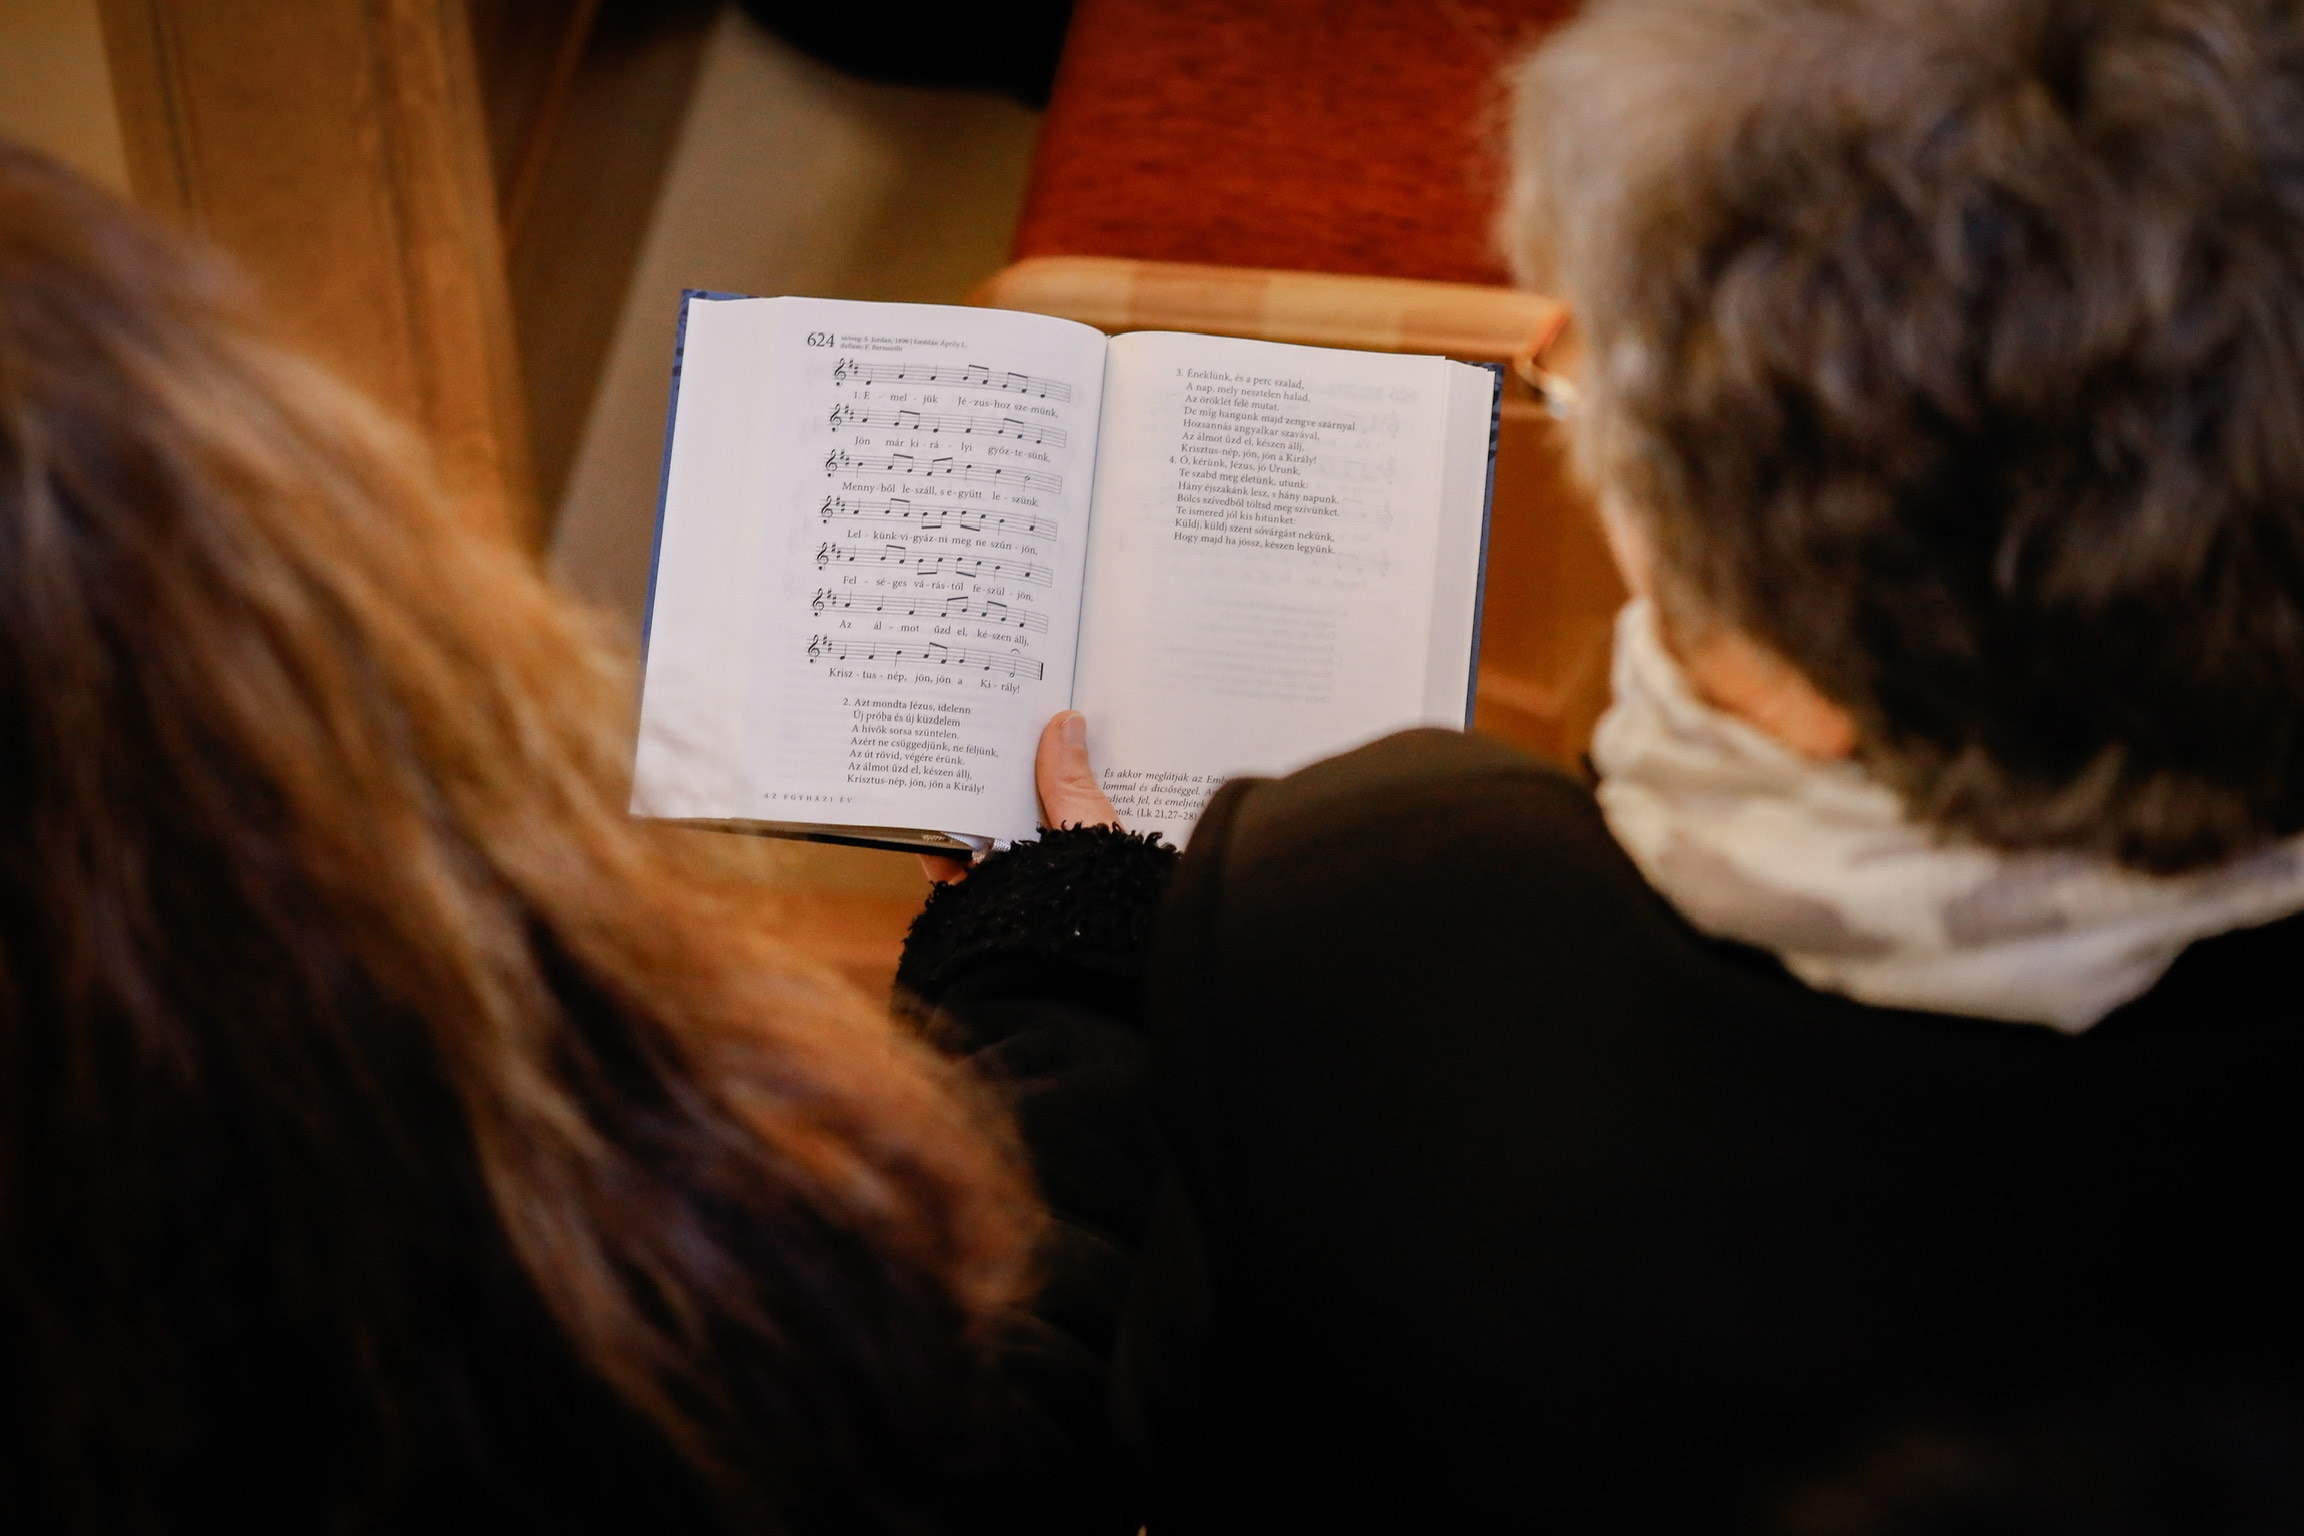 624
szöveg: S. Jordan, 1896 | fordítás: Áprily L.
dallam: F. Bernouilli
1. E - mel - jük Jé - zus - hoz sze - münk,
Jön már ki - rá - lyi győz - te - sünk,
Menny - ből le - száll, s e - gyütt le - szünk.
Lel - künk vi - gyáz - ni meg ne szűn - jön,
Fel - sé - ges vá - rás - tól fe - szül - jön,
Az ál - mot űzd el, ké - szen állj,
Krisz - tus - nép, jön, jön a Ki - rály!
2. Azt mondta Jézus, idelenn
Új próba és új küzdelem
A hívők sorsa szüntelen.
Azért ne csüggedjünk, ne féljünk,
Az út rövid, végére érünk.
Az álmot űzd el, készen állj,
Krisztus-nép, jön, jön a Király!
AZ EGYHÁZI ÉV
3. Éneklünk, és a perc szalad,
A nap, mely nesztelen halad,
Az öröklét felé mutat.
De míg hangunk majd zengve szárnyal
Hozsannás angyalkar szavával,
Az álmot űzd el, készen állj,
Krisztus-nép, jön, jön a Király!
4. Ó, kérünk, Jézus, jó Urunk,
Te szabd meg életünk, utunk:
Hány éjszakánk lesz, s hány napunk.
Bölcs szívedből töltsd meg szívünket.
Te ismered jól kis hitünket:
Küldj, küldj szent sóvárgást nekünk,
Hogy majd ha jössz, készen legyünk.
És akkor meglátják az
lommal és dicsőséggel.
fel, és emeljétek
(Lk 21,27–28)